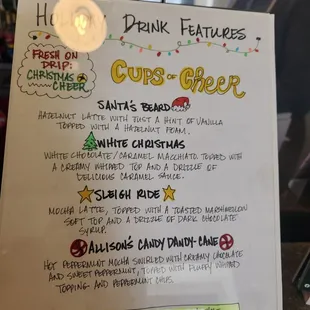 Drink Features
Fresh on
Drip:
Christmas
Cheer
Cups of Cheer
Santa's Beard
Hazelnut latte with just a hint of vanilla
topped with a hazelnut foam.
White Christmas
White chocolate/caramel macchiato topped with
a creamy whipped top and a drizzle of
delicious caramel sauce.
Sleigh Ride
Mocha latte, topped with a toasted marshmallow
soft top and a drizzle of dark chocolate
syrup.
Allison's Candy Dandy-Cane
Hot peppermint mocha swirled with creamy chocolate
and sweet peppermint, topped with fluffy whipped
topping and peppermint chips.